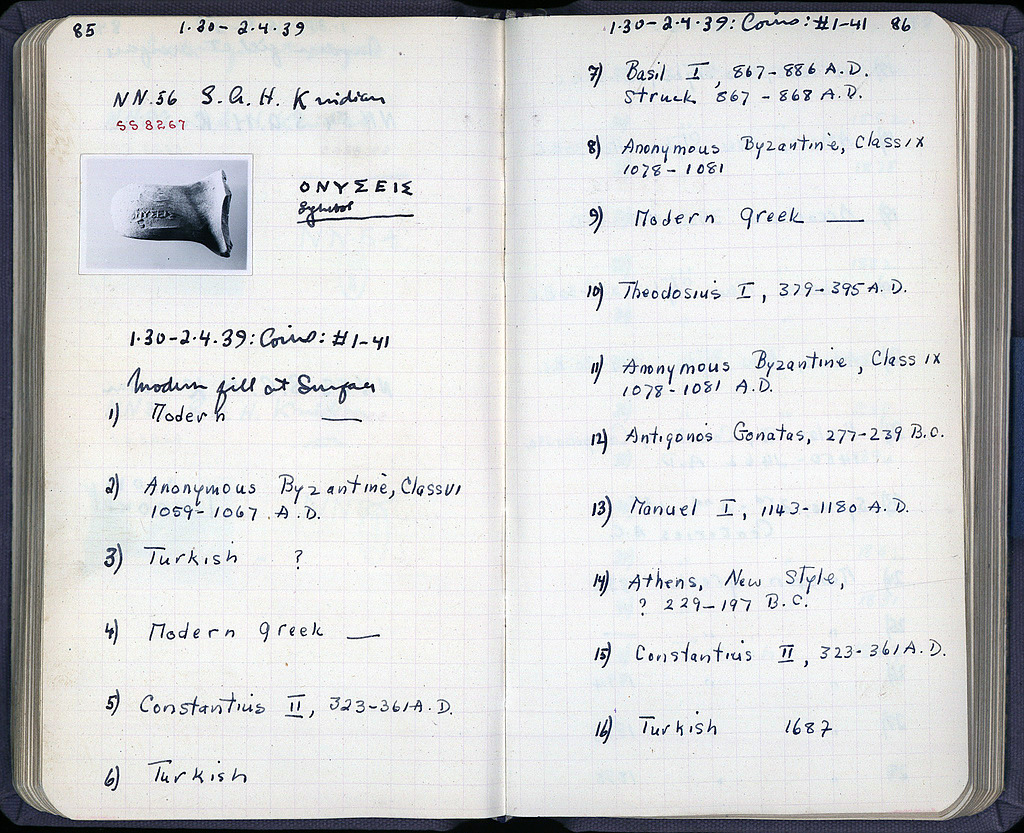 85 1·30 - 2·4·39
NN.56 S.A.H. Knidian
SS 8267
ΟΝΥΣΕΙΣ
ΟΝΥΣΕΙΣ
Symbol
1·30-2·4·39: Coins: #1-41
Modern fill at Surface
1) Modern —
2) Anonymous Byzantine, Class VI
1059-1067 A.D.
3) Turkish ?
4) Modern Greek —
5) Constantius II, 323-361 A.D.
6) Turkish
1·30-2·4·39: Coins: #1-41 86
7) Basil I, 867-886 A.D.
Struck 867 - 868 A.D.
8) Anonymous Byzantine, Class IX
1078-1081
9) Modern Greek —
10) Theodosius I, 379-395 A.D.
11) Anonymous Byzantine, Class IX
1078-1081 A.D.
12) Antigonos Gonatas, 277-239 B.C.
13) Manuel I, 1143-1180 A.D.
14) Athens, New Style,
? 229-197 B.C.
15) Constantius II, 323-361 A.D.
16) Turkish 1687